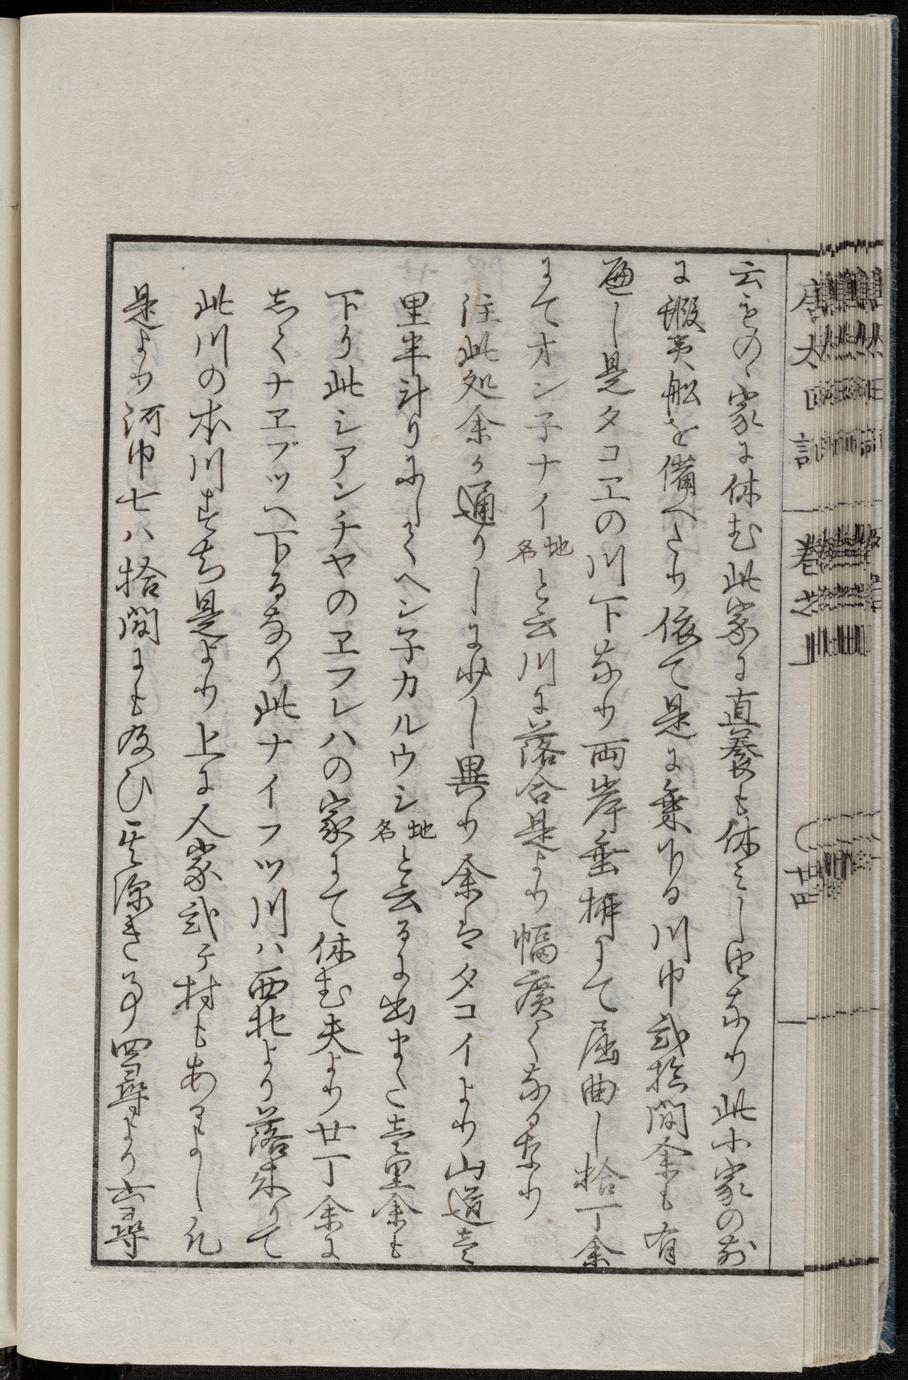 云ものゝ家に休む此家に直養も休みし由なり此小家の前
に蝦夷船を備へたり依て是に乗りて下る川巾弐拾間余も有
へし是タコエの川下なり両岸垂柳にて屈曲し拾丁余
にてオン子ナイ地名と云川に落合是より幅廣くなるなり
注此処余か通りしに少し異り余はタコイより山道壱
里半計りにしてヘン子カルウシ地名と云るに出また壱里余も
下り此シアンチヤのエフレハの家にて休む夫より廿丁余に
してナエブツへ下るなり此ナイフツ川ハ西北より落来りて
此川の本川すち是より上に人家弐ヶ村もあるよし
是より河巾七八拾間にも及ひ其深き事四尋より六尋
唐太日記 巻之上 廿四